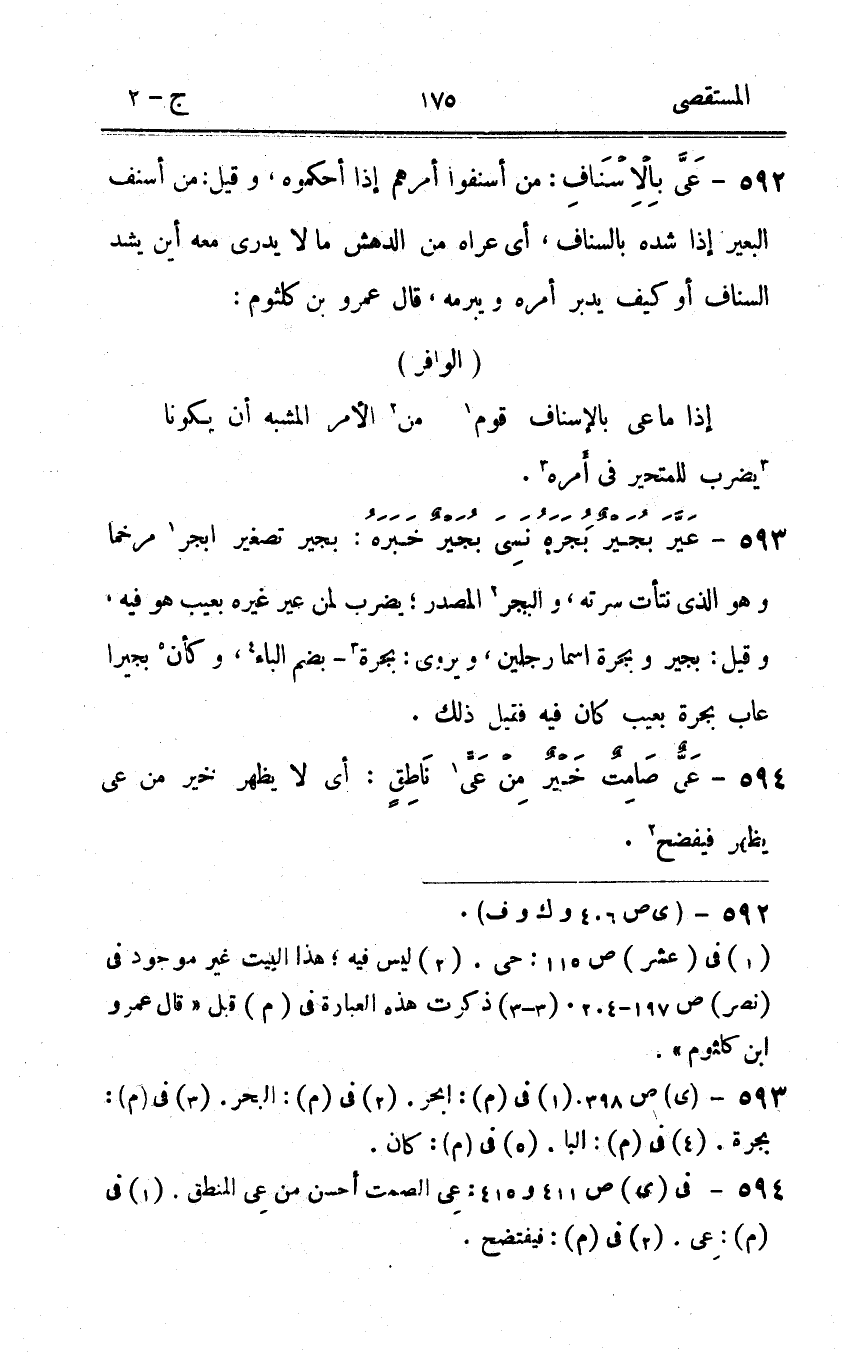 المستقصى ١٧٥ ج – ٢
٥٩٢ – عَىَّ بِالْإِسْنَافِ : من أسنفوا أمرهم إذا أحكموه ، و قيل : من أسنف
البعير إذا شده بالسناف ، أى عراه من الدهش ما لا يدرى معه أين يشد
السناف أو كيف يدبر أمره و يبرمه ، قال عمرو بن كلثوم :
( الوافر )
إذا ما عى بالإسناف قوم١ من٢ الأمر المشبه أن يكونا
٣يضرب للمتحير فى أَمره٣ .
٥٩٣ – عَيَّرَ بُجَيْرٌ بُجَرَهُ نَسِىَ بُجَيْرٌ خَبَرَهُ : بجير تصغير ابجر١ مرخما
و هو الذى نتأت سرته ، و البجر٢ المصدر ؛ يضرب لمن عير غيره بعيب هو فيه ،
و قيل : بجير و بجرة اسما رجلين ، و يروى : بجرة٣ – بضم الباء٤ ، و كأن٥ بجيرا
عاب بجرة بعيب كان فيه فقيل ذلك .
٥٩٤ – عَىٌّ صَامِتٌ خَيْرٌ مِنْ عَىٍّ١ نَاطِقٍ : أى لا يظهر خير من عى
يظهر فيفضح٢ .
٥٩٢ – (ى ص ٤٠٦ و ك و ف) .
(١) فى ( عشر ) ص ١١٥ : حى . (٢) ليس فيه ؛ هذا البيت غير موجود فى
(نصر) ص ١٩٧–٢٠٤ . (٣–٣) ذكرت هذه العبارة فى ( م ) قبل « قال عمرو
ابن كلثوم » .
٥٩٣ – (ى) ص ٣٩٨. (١) فى (م) : ابحر . (٢) فى (م) : البحر . (٣) فى (م) :
بجرة . (٤) فى (م) : البا . (٥) فى (م) : كان .
٥٩٤ – فى (ى) ص ٤١١ و ٤١٥ : عِى الصمت أحسن من عِى المنطق . (١) فى
(م) : عِى . (٢) فى (م) : فيفتضح .